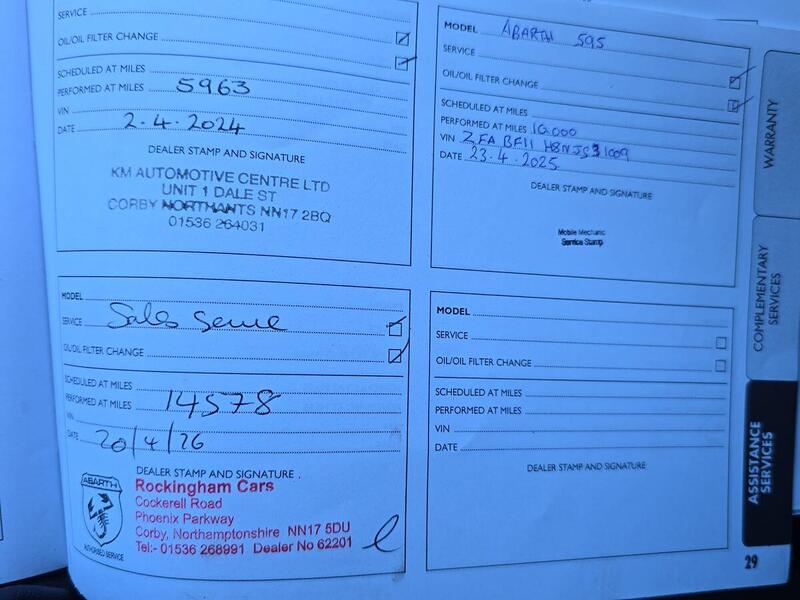 SERVICE
OIL/OIL FILTER CHANGE
SCHEDULED AT MILES
PERFORMED AT MILES 5963
VIN
DATE 2.4.2024
DEALER STAMP AND SIGNATURE
KM AUTOMOTIVE CENTRE LTD
UNIT 1 DALE ST
CORBY NORTHANTS NN17 2BQ
01536 264031
MODEL ABARTH 595
SERVICE
OIL/OIL FILTER CHANGE
SCHEDULED AT MILES
PERFORMED AT MILES 10000
VIN ZFA BF11 H8NJS31009
DATE 23.4.2025
DEALER STAMP AND SIGNATURE
Mobile Mechanic
Service Stamp
MODEL
SERVICE Sales
OIL/OIL FILTER CHANGE
SCHEDULED AT MILES
PERFORMED AT MILES 14578
VIN
DATE 20/4/26
DEALER STAMP AND SIGNATURE
ABARTH
AUTHORISED SERVICE
Rockingham Cars
Cockerell Road
Phoenix Parkway
Corby, Northamptonshire NN17 5DU
Tel:- 01536 268991 Dealer No 62201
MODEL
SERVICE
OIL/OIL FILTER CHANGE
SCHEDULED AT MILES
PERFORMED AT MILES
VIN
DATE
DEALER STAMP AND SIGNATURE
WARRANTY
COMPLEMENTARY
SERVICES
ASSISTANCE
SERVICES
29